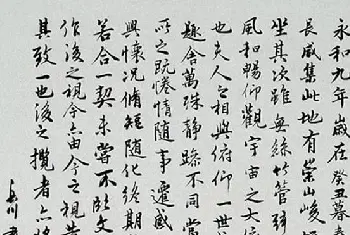 永和九年歲在癸丑暮春
長咸集此地有崇山峻
坐其次雖無絲竹管弦
風和暢仰觀宇宙之大
也夫人之相與俯仰一世
趣舍萬殊靜躁不同當
所之既惓情隨事遷感
興懷況脩短隨化終期
若合一契未嘗不臨文
作後之視今亦由今之視昔
其致一也後之攬者亦將